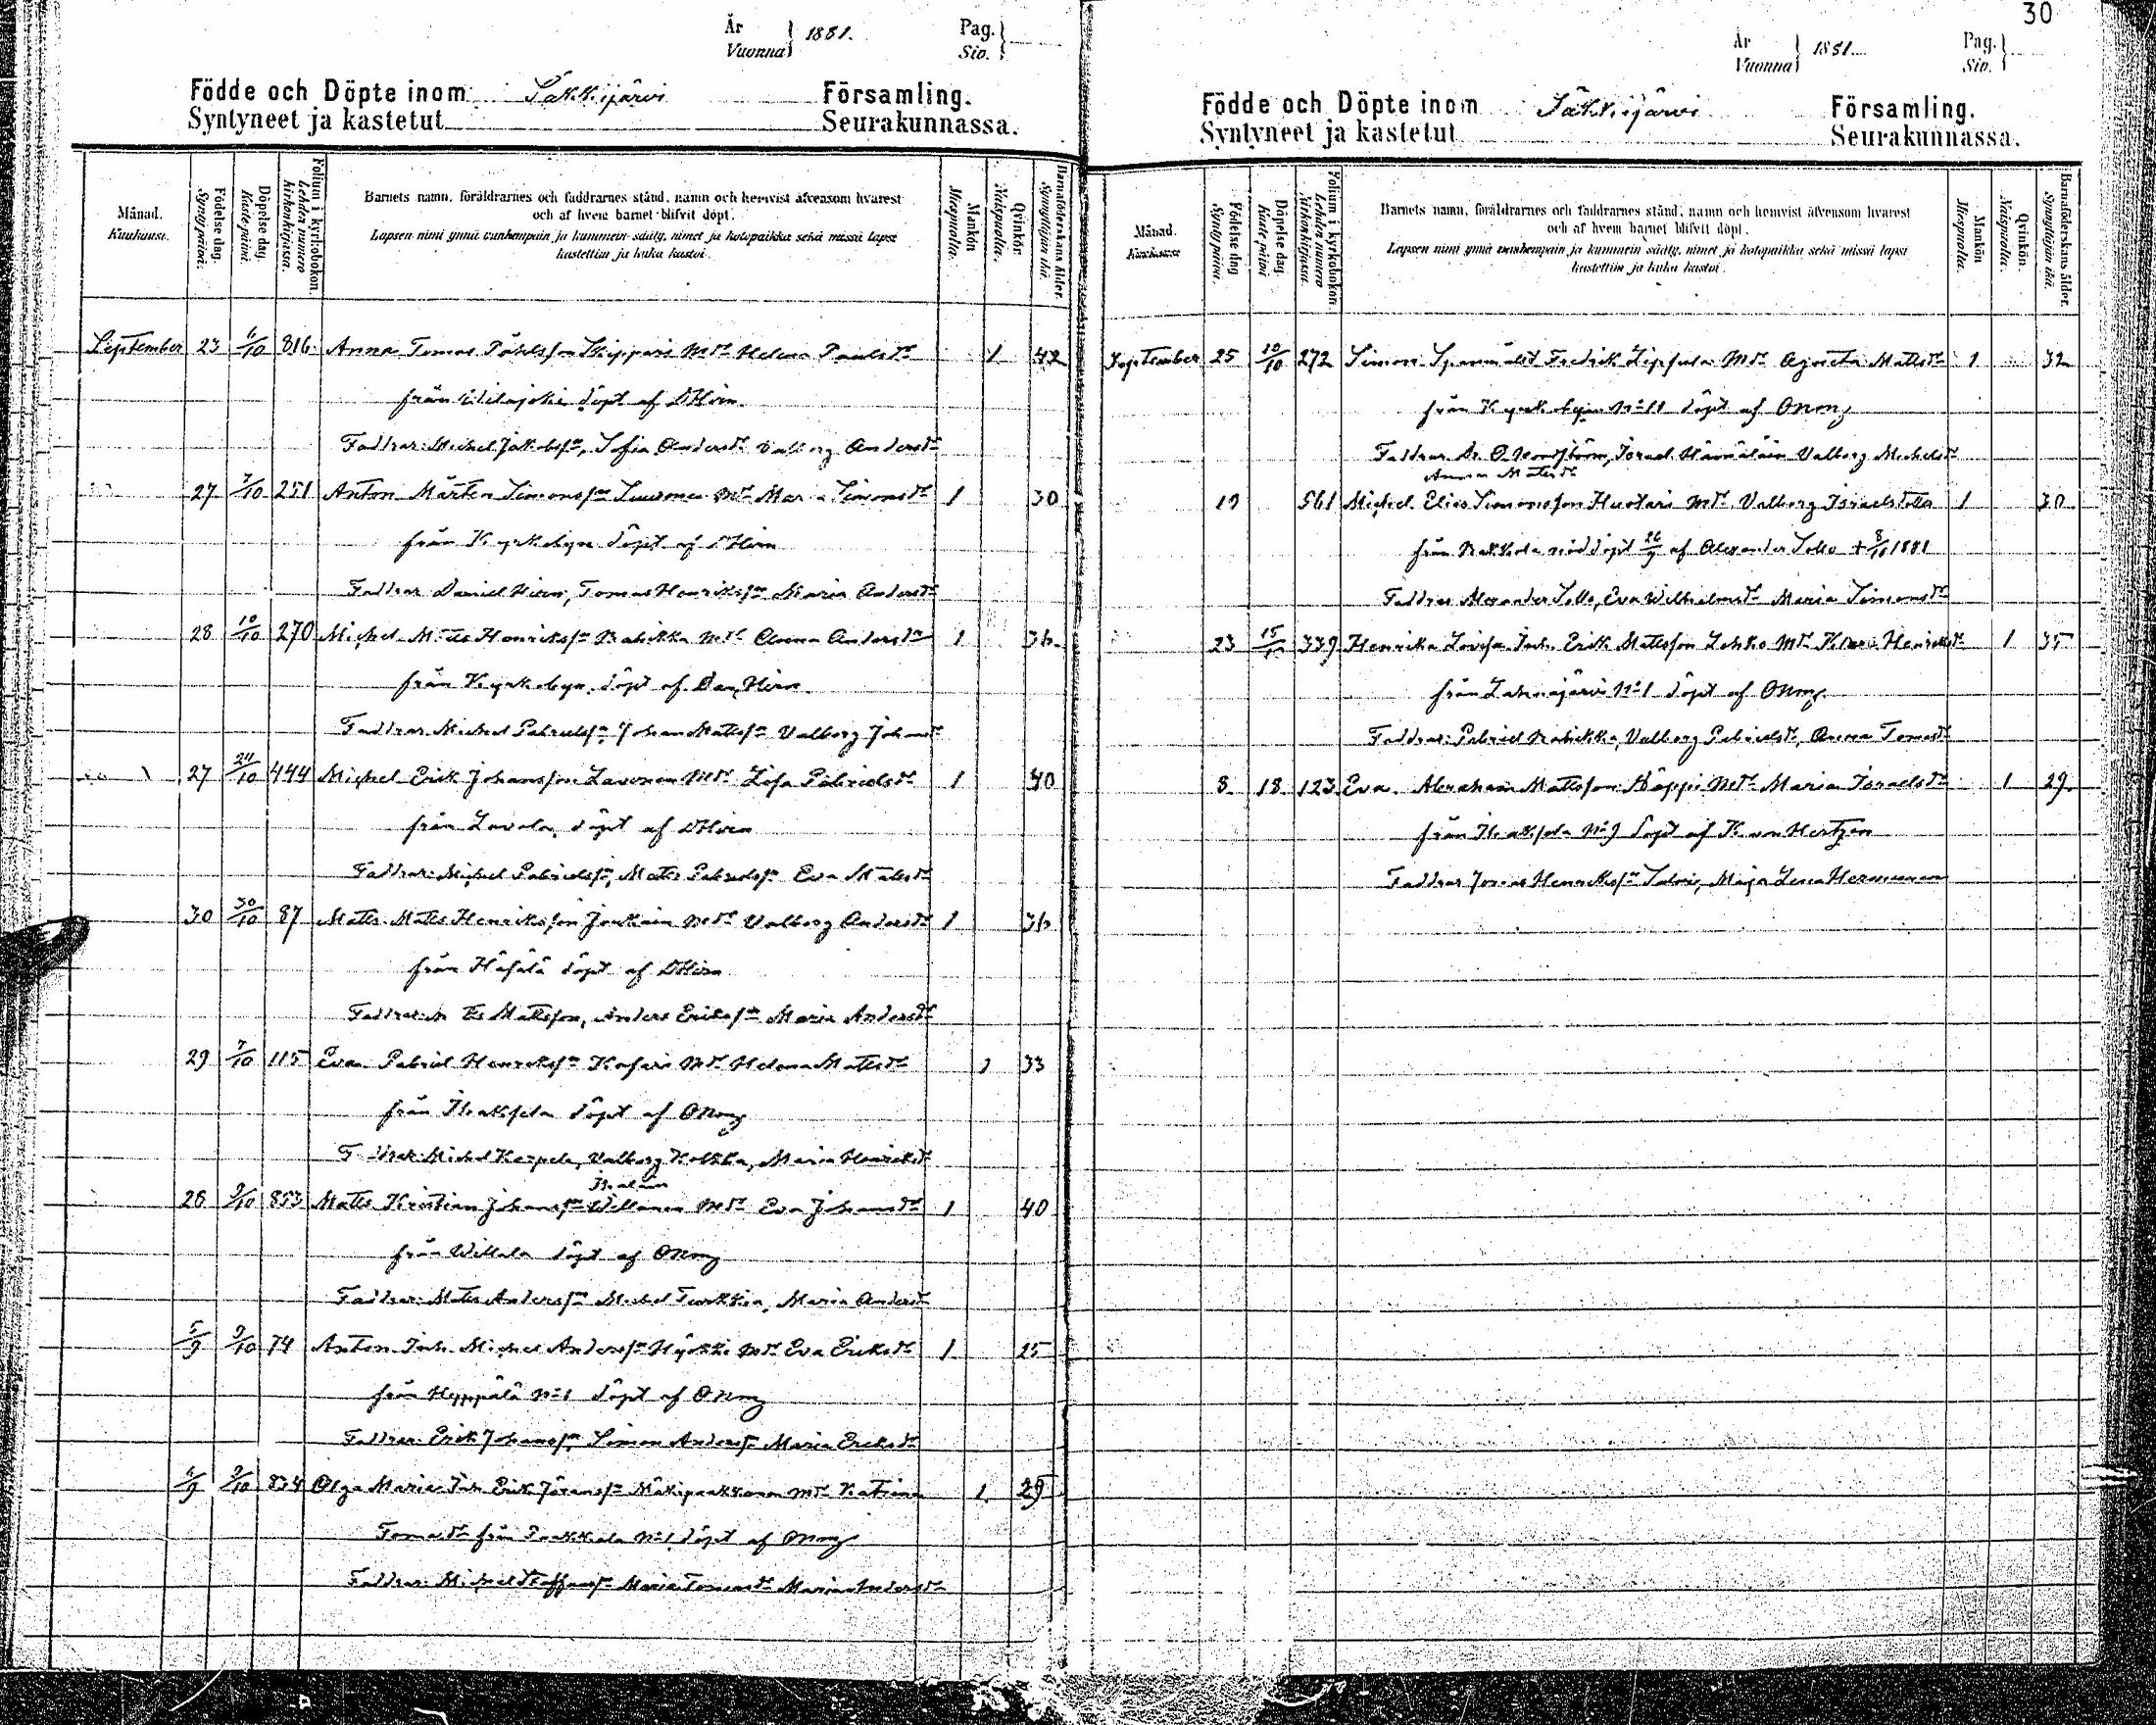 År
Vuonna } 1881.
Pag.
Siv. }
Födde och Döpte inom Säkkijärvi Församling.
Syntyneet ja kastetut Seurakunnassa.
Månad.
Kuukausi.
Födelse dag.
Syntypäivä.
Döpelse dag.
Kastepäivä.
Folium i kyrkoboken.
Lehden numero kirkonkirjassa.
Barnets namn, föräldrarnes och faddrarnes stånd, namn och hemvist äfvensom hvarest
och af hvem barnet blifvit döpt.
Lapsen nimi ynnä vanhempain ja kummein sääty, nimet ja kotopaikka sekä missä lapsi
kastettiin ja kuka kastoi.
Mankön
Miespuolia.
Qvinkön.
Naispuolia.
Barnaföderskans ålder.
Synnyttäjän ikä.
September 23 6/10 816 Anna Tomas Påhlsson Skippari Mdr Helena Paulsdr 1 42
från Wilajoki döpt af DHirn
Faddrar: Michel Jakobsson, Sofia Andersdr Valborg Andersdr
27 7/10 251 Anton Mårten Simonsson Mdr Maria Simonsdr 1 30
från Kyrkobyn döpt af DHirn
Faddrar Daniel Hirn, Tomas Henriksson Maria Andersdr
28 10/10 270 Michel Matts Henriksson Rabikka Mdr Anna Andersdr 1 36
från Kyrkobyn döpt af Dan Hirn
Faddrar Michel Gabrielsson Johan Mattsson Valborg Johansdr
27 24/10 444 Michel Erik Johansson Lavonen Mdr Lisa Gabrielsdr 1 40
från Lavola, döpt af DHirn
Faddrar: Michel Gabrielsson, Matts Gabrielsson Eva Mattsdr
30 30/10 87 Matts Matts Henriksson Joukain Mdr Valborg Andersdr 1 36
från Häsälä döpt af DHirn
Faddrar: Mattsson, Anders Eriksson Maria Andersdr
29 7/10 115 Eva Gabriel Henriksson Mdr Helena Mattsdr 1 33
från Ihaksela döpt af ONmg
Faddrar: Michel Karpela, Valborg Kolkka, Maria Henriksdr
26 9/10 853 Matts Kristian Johansson Willanen Mdr Eva Johansdr 1 40
från Willala döpt af ONmg
Faddrar: Matts Andersson Michel Turkkia, Maria Andersdr
5/9 9/10 74 Anton Inh. Michel Andersson Hyökki Mdr Eva Eriksdr 1 25
från Hyppälä No 1 döpt af ONmg
Faddrar: Erik Johansson, Simon Andersson Maria Eriksdr
6/9 9/10 834 Olga Maria Inh Erik Göransson Mäkipaakkanen Mdr Katrina 1 29
Tomasdr från Paakkala No 1 döpt af ONmg
Faddrar: Michel Staffansson Maria Tomasdr Maria Andersdr
30
År
Vuonna } 1881
Pag.
Siv. }
Födde och Döpte inom Säkkijärvi Församling.
Syntyneet ja kastetut Seurakunnassa.
Månad.
Kuukausi
Födelse dag
Syntypäivä.
Döpelse dag
Kastepäivä.
Folium i kyrkoboken.
Lehden numero kirkonkirjassa.
Barnets namn, föräldrarnes och faddrarnes stånd, namn och hemvist äfvensom hvarest
och af hvem barnet blifvit döpt.
Lapsen nimi ynnä vanhempain ja kummein sääty, nimet ja kotopaikka sekä missä lapsi
kastettiin ja kuka kastoi.
Mankön
Miespuolia.
Qvinkön.
Naispuolia.
Barnaföderskans ålder.
Synnyttäjän ikä.
September 25 10/10 272 Simon Fredrik Mdr Agneta Mattsdr 1 32
från Kyrkobyn No 11 döpt af ONmg
Faddrar O. Nordström, Israel Hämäläin Valborg Michelsdr
Anna Mattsdr
19 561 Michel Elias Simonsson Huotari Mdr Valborg Israelsdotter 1 30
från Rakkola nöddöpt 26/9 af Alexander Sollo + 8/10 1881
Faddrar Alexander Sollo, Eva Wilhelmsdr Maria Simonsdr
23 15/10 339 Henrika Lovisa Inh. Erik Mattsson Lehko Mdr Klara Henriksdr 1 35
från Lahnajärvi No 1 döpt af ONmg
Faddrar: Gabriel Rabikka, Valborg Gabrielsdr, Anna Tomasdr
8 18 123 Eva Abraham Mattsson Käppi Mdr Maria Israelsdr 1 29
från Ihaksela No 9 döpt af K von Hertzen
Faddrar Josias Henriksson Talvi, Maja Lena Hermunen